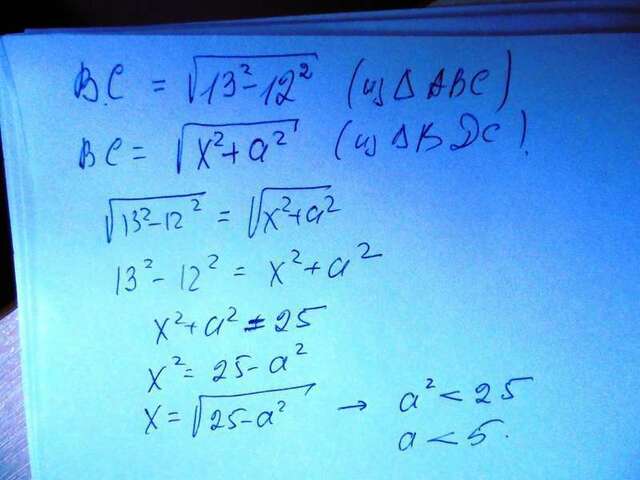 BC = √(13²-12²) (из Δ ABC)
BC = √(x²+a²) (из Δ BDC).
√(13²-12²) = √(x²+a²)
13²-12² = x²+a²
x²+a² = 25
x² = 25-a²
x = √(25-a²) → a² < 25
a < 5.